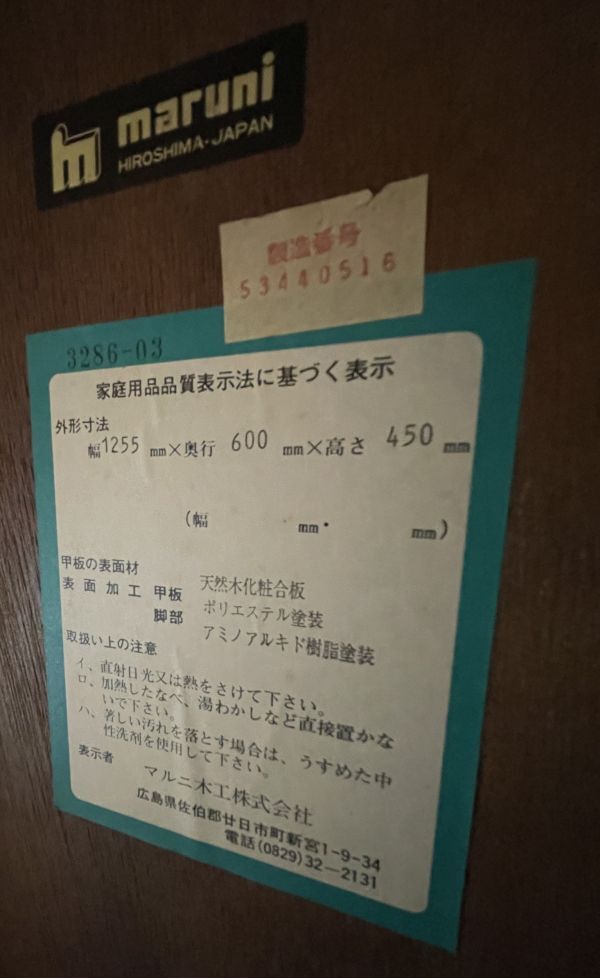 maruni
HIROSHIMA・JAPAN
製造番号
53440516
3286-03
家庭用品品質表示法に基づく表示
外形寸法
幅1255mm×奥行 600 mm×高さ 450 mm
(幅 mm・ mm)
甲板の表面材 天然木化粧合板
表面加工 甲板 ポリエステル塗装
脚部 アミノアルキド樹脂塗装
取扱い上の注意
イ、直射日光又は熱をさけて下さい。
ロ、加熱したなべ、湯わかしなど直接置かな
いで下さい。
ハ、著しい汚れを落とす場合は、うすめた中
性洗剤を使用して下さい。
表示者 マルニ木工株式会社
広島県佐伯郡廿日市町新宮1-9-34
電話(0829)32-2131